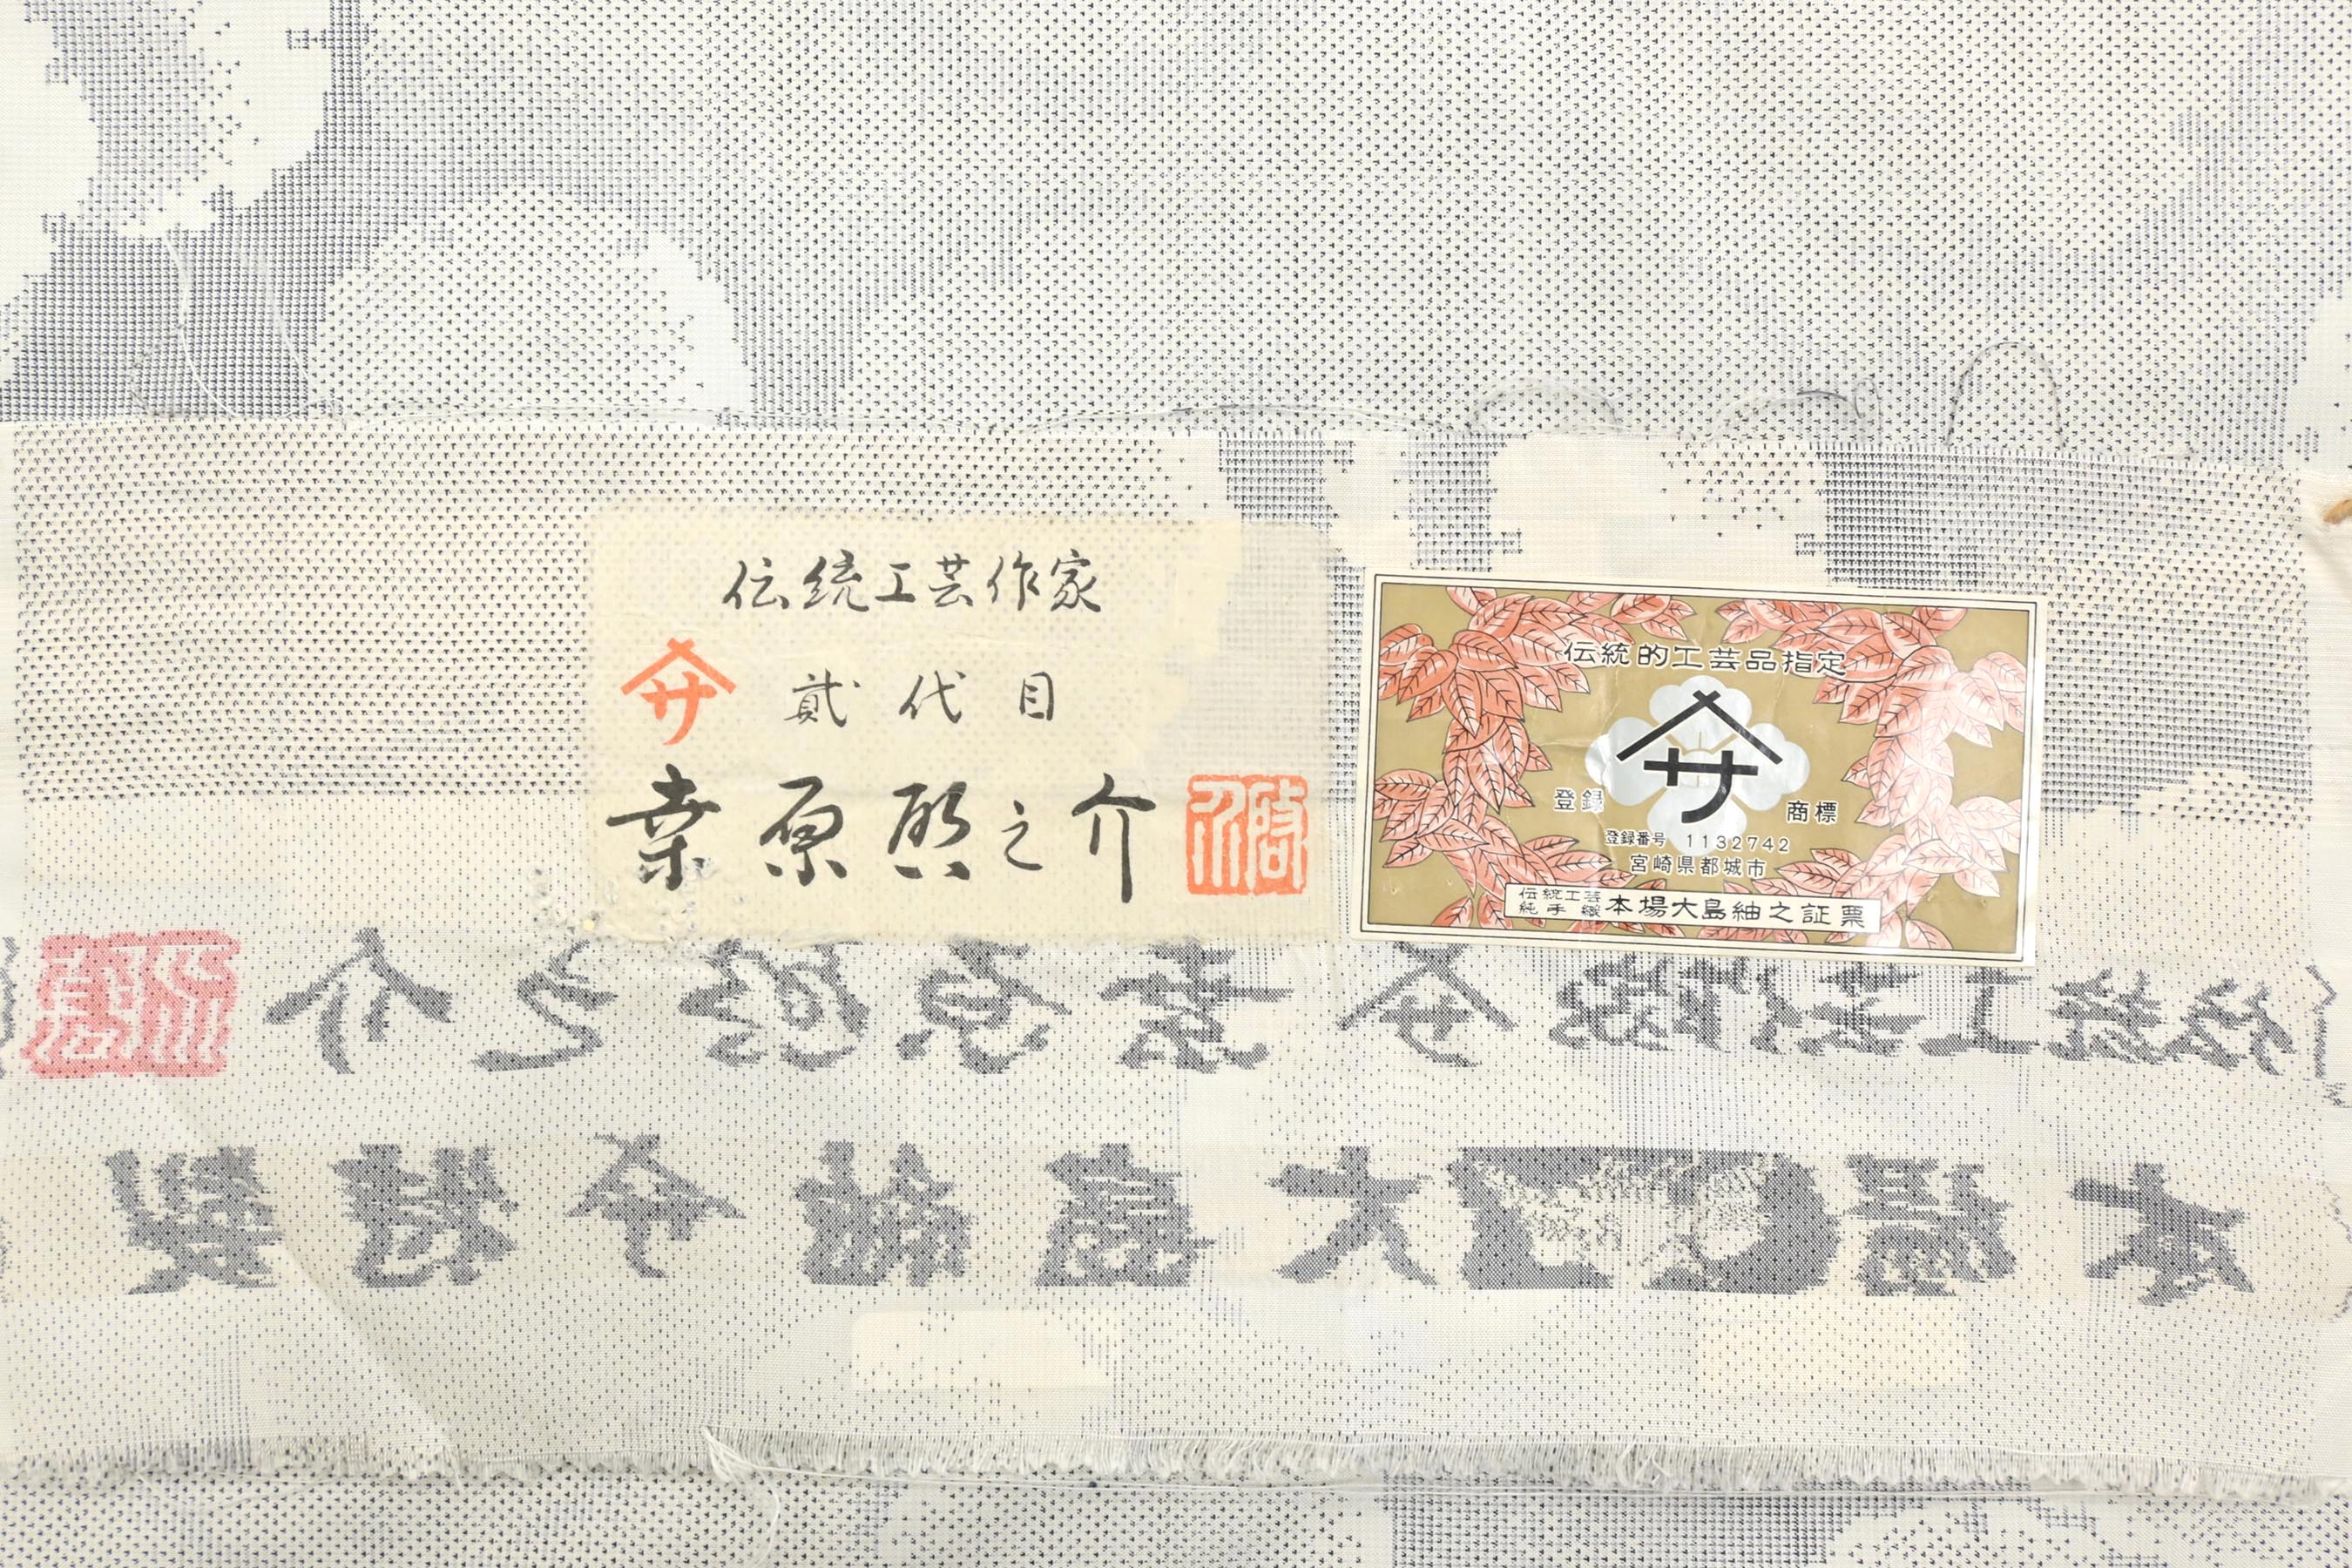 伝統工芸作家
サ 貳代目
桒原啓之介
伝統的工芸品指定
サ
登録 商標
登録番号 1132742
宮崎県都城市
伝統工芸
純手織
本場大島紬之証票
伝統工芸 サ 桒原啓之介
本場 大島紬 サ 特製